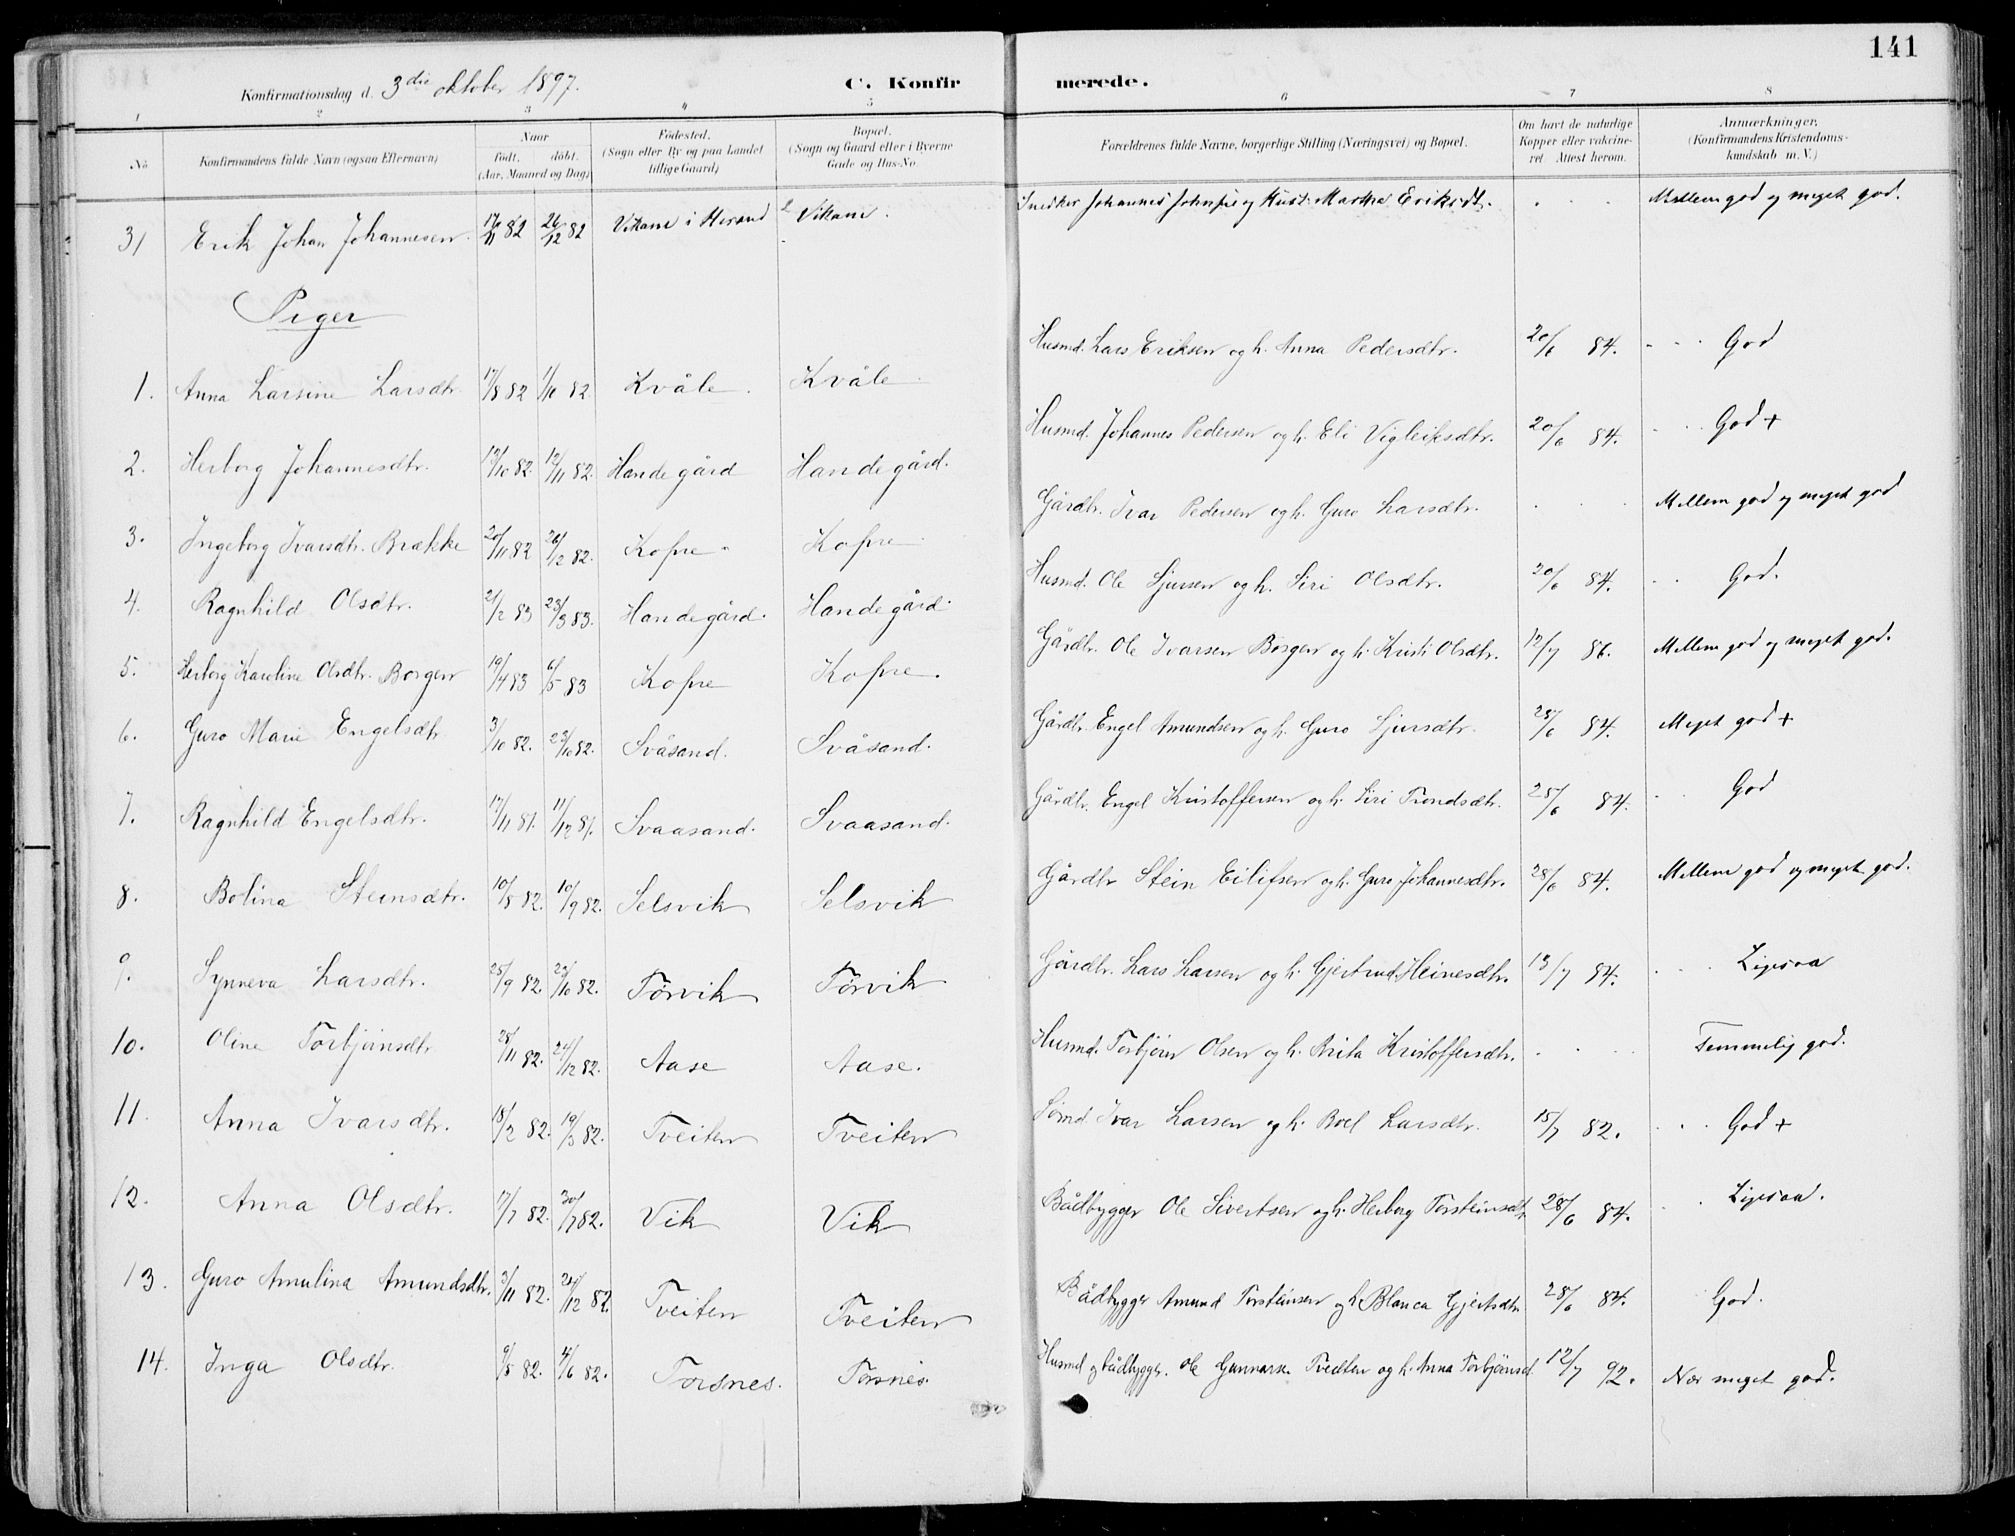 141
Konfirmationsdag d. 3die oktober 1897.
C. Konfirmerede.
1 2 3 4 5 6 7 8
No
Konfirmandens fulde Navn (ogsaa Efternavn)
Naar født. døbt. (Aar, Maaned og Dag)
Fødested. (Sogn eller By og paa Landet tillige Gaard)
Bopæl. (Sogn og Gaard eller i Byerne Gade og Hus-No.
Forældrenes fulde Navne, borgerlige Stilling (Næringsvei) og Bopæl.
Om havt de naturlige Kopper eller vaksineret Attest herom.
Anmærkninger. (Konfirmandens Kristendomskundskab m. V.)
31 Erik Johan Johannesen 82 26/12 82 Vikane i Herand Vikane. Snedker Johannes og Hust. Martha Eriksdt. . . . Mellem god og meget god.
Piger
1. Anna Larsine Larsdtr. 17/8 82 1/10 82. Kvåle. Kvåle. Husmd. Lars Eriksen og h. Anna Pedersdtr. 20/6 84. . . . God
2. Herborg Johannesdtr. 19/10 82 12/11 82. Handegård Handegård. Husmd. Johannes Pedersen og h. Eli Vigleiksdtr. 20/6 84. . . God +
3. Ingeborg Ivarsdtr. Brække 20/11 82 26/12 82. Kofre Kofre Gårdbr. Ivar Pedersen og h. Guro Larsdtr. . . . Mellem god og meget god
4. Ragnhild Olsdtr. 21/2 83 23/3 83. Handegård. Handegård. Husmd. Ole Sjursen og h. Siri Olsdtr. 20/6 84. . . God.
5. Herborg Karoline Olsdtr. Borgen 19/4 83 6/5 83 Kofre Kofre. Gårdbr. Ole Ivarsen Borgen og h. Kristi Olsdtr. 12/7 86. Mellem god og meget god.
6. Guro Marie Engelsdtr. 3/10 82. 23/10 82. Svåsand. Svåsand. Gårdbr. Engel Amundsen og h. Guro Sjursdtr. 28/6 84. Meget god +
7. Ragnhild Engelsdtr. 17/11 81. 11/12 81. Svaasand. Svaasand. Gårdbr. Engel Kristoffersen og h. Siri Trondsdtr. 28/6 84. . . God
8. Bolina Steinsdtr. 10/8 82. 10/9 82. Selsvik Selsvik Gårdbr Stein Eilifsen og h. Guro Johannesdtr. 28/6 84. Mellem god og meget god.
9. Synneva Larsdtr. 25/9 82. 29/10 82. Tørvik Tørvik Gårdbr. Lars Larsen og h. Gjertrud Heinesdtr. 13/7 84. . . . Ligesaa
10. Oline Torbjørnsdtr. 28/11 82. 24/12 82. Aase Aase. Husmd. Torbjørn Olsen og h. Brita Kristoffersdtr. . . . Temmelig god.
11. Anna Ivarsdtr. 18/2 82. 19/3 82. Tveiten Tveiten Sømd. Ivar Larsen og h. Boel Larsdtr. 15/7 82. . . . God +
12. Anna Olsdtr. 17/7 82. 30/7 82. Vik Vik Bådbygger Ole Sivertsen og h. Herborg Torsteinsdtr 28/6 84. . . Ligesaa.
13. Guro Amulina Amundsdtr. 3/11 82. 24/12 82. Tveiten Tveiten Bådbygger Amund Torsteinsen og h. Blanca Gjertsdtr 28/6 84. God.
14. Inga Olsdtr. 82. 4/6 82. Torsnes. Torsnes. Husmd og bådbygger. Ole Gunnars. Tveiten og h. Anna Torbjørnsd. 12/7 92. Nær meget god.